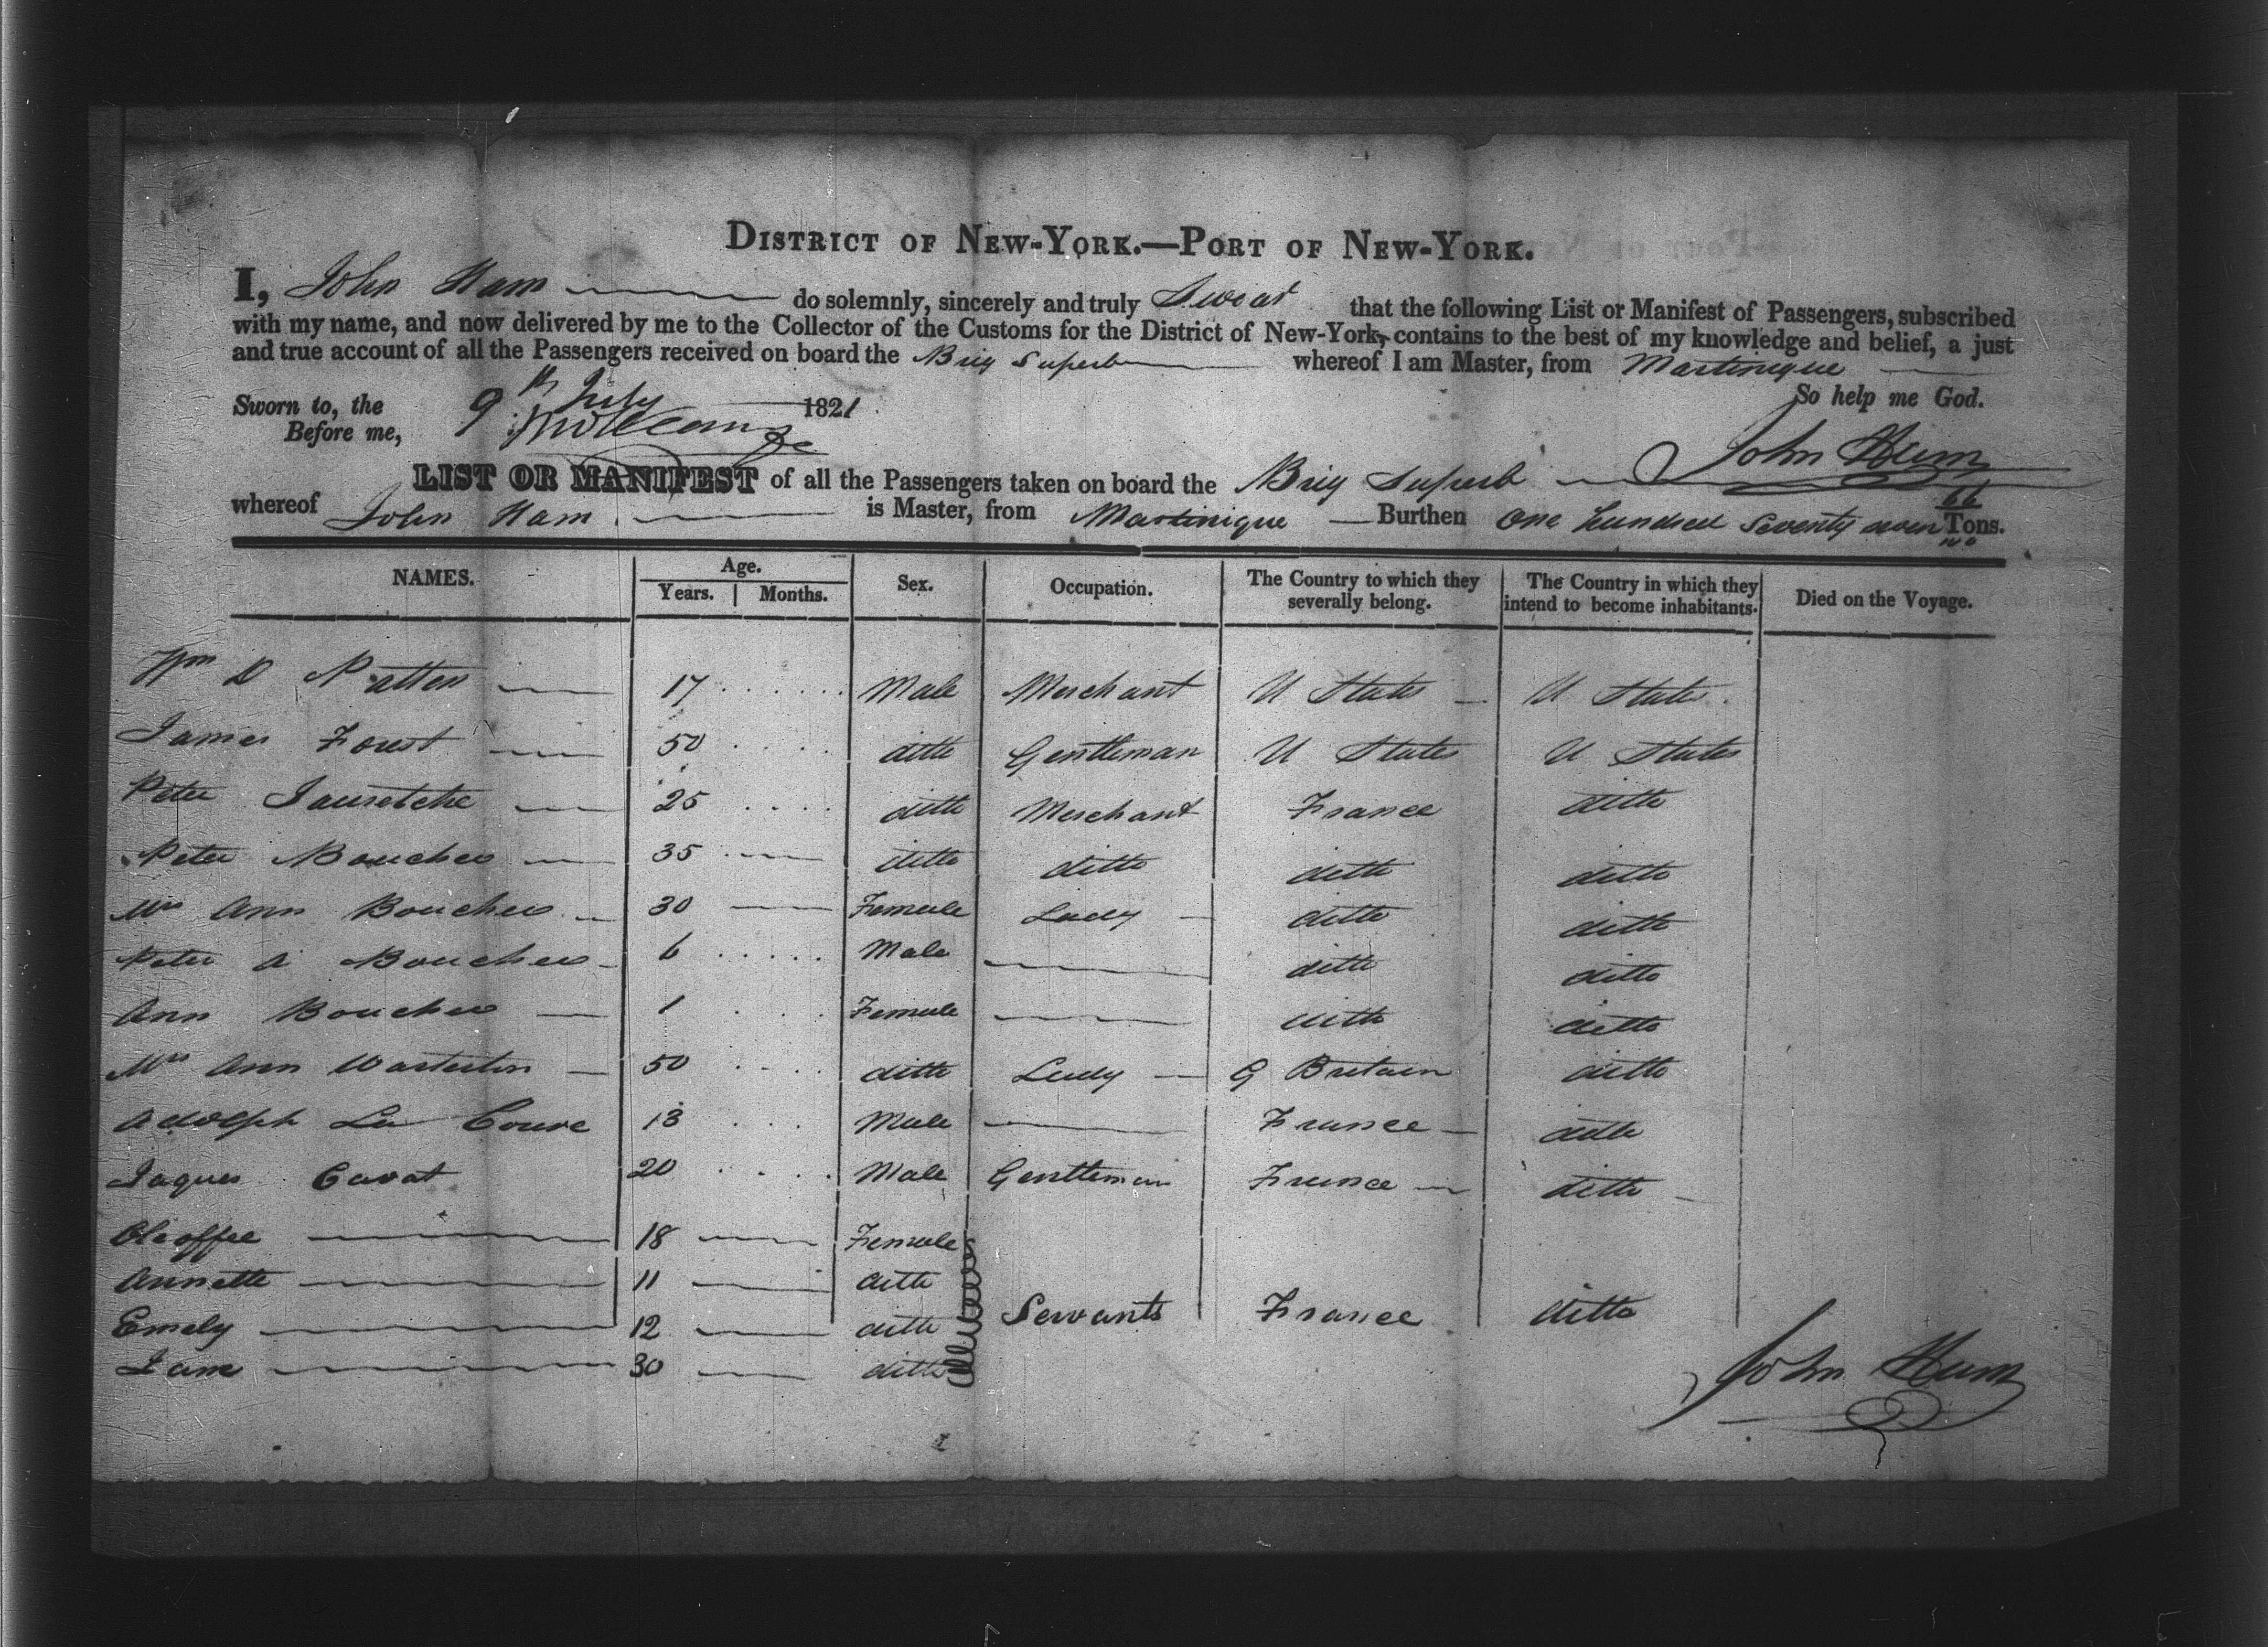 DISTRICT OF NEW-YORK.—PORT OF NEW-YORK.
I, John Ham do solemnly, sincerely and truly Swear that the following List or Manifest of Passengers, subscribed
with my name, and now delivered by me to the Collector of the Customs for the District of New-York, contains to the best of my knowledge and belief, a just
and true account of all the Passengers received on board the Brig Superb whereof I am Master, from Martinique
Sworn to, the 9th July 1821 So help me God.
Before me,
John Ham
LIST OR MANIFEST of all the Passengers taken on board the Brig Superb
whereof John Ham is Master, from Martinique Burthen One hundred Seventy seven 66 Tons.
NAMES. Age. Years. Months. Sex. Occupation. The Country to which they severally belong. The Country in which they intend to become inhabitants. Died on the Voyage.
Wm D Patten 17 Male Merchant U States U States
James Foust 50 ditto Gentleman U States U States
Peter 25 ditto Merchant France ditto
Peter Bouchee 35 ditto ditto ditto ditto
Mrs Ann Bouchee 30 Female Lady ditto ditto
Peter A Bouchee 6 Male ditto ditto
Ann Bouchee 1 Female ditto ditto
Mrs Ann 50 ditto Lady G Britain ditto
Adolph La Couve 13 Male France ditto
Jaques Cavat 20 Male Gentleman France ditto
18 Female
Annette 11 ditto
Emely 12 ditto Servants France ditto
Jane 30 ditto
John Ham